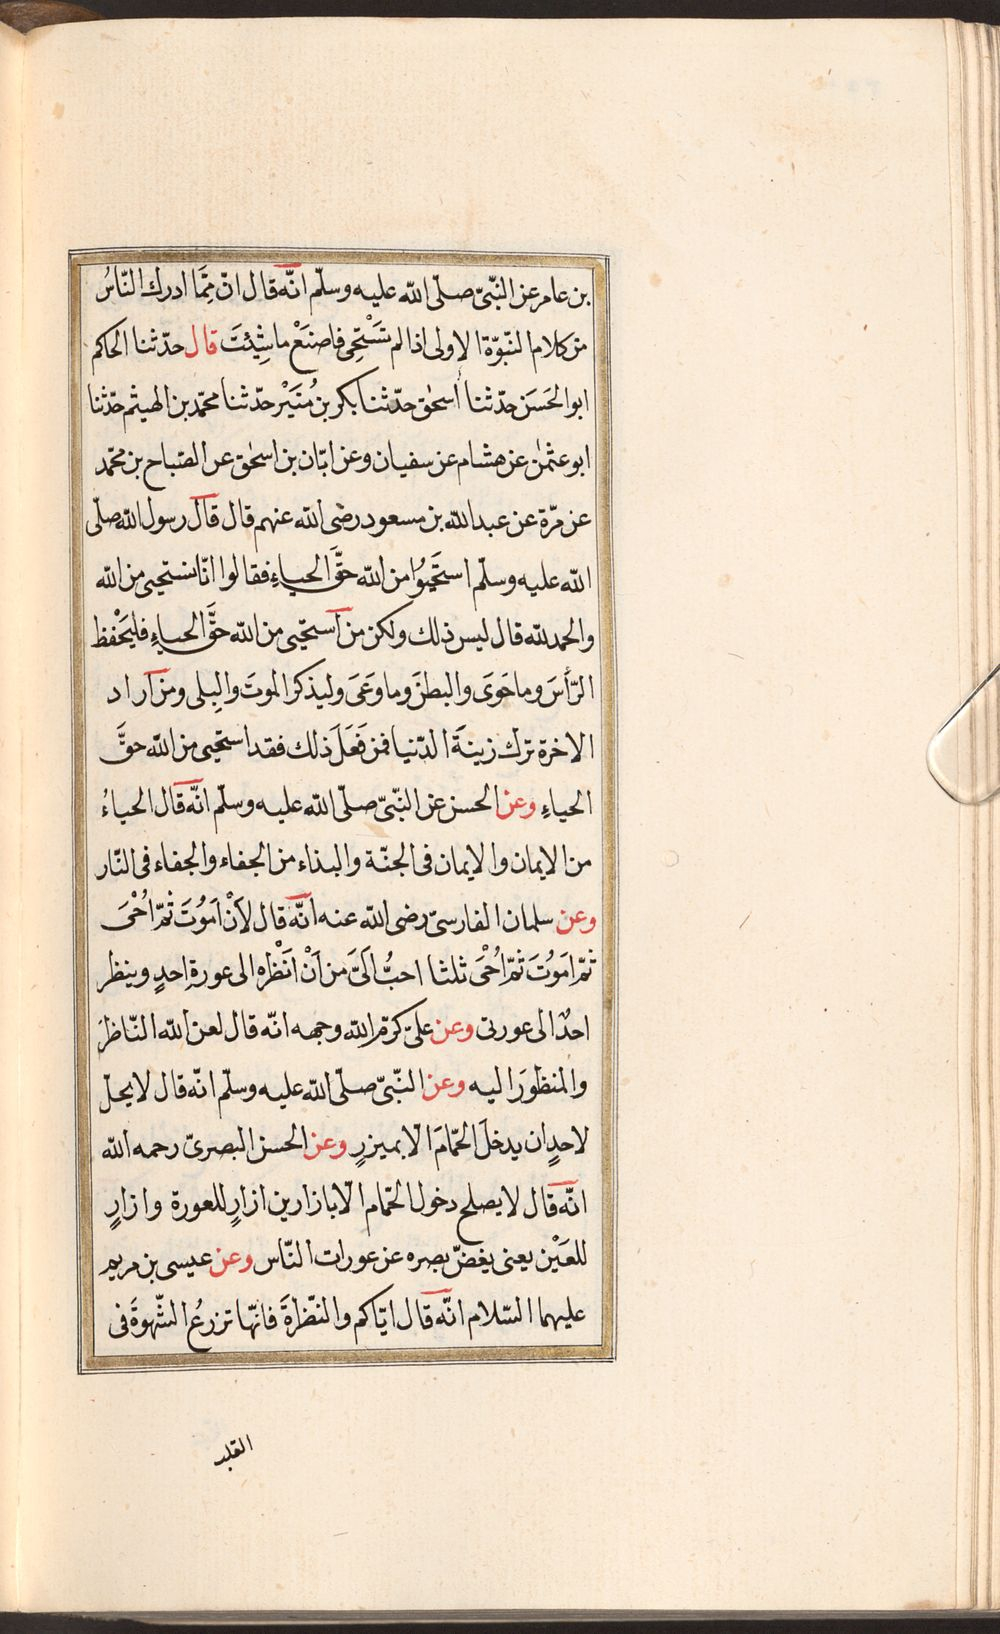 بن عامر عن النّبىّ صلّى اللّه عليه وسلّم انّه قال انّ ممّا ادرك النّاسُ
من كلام النّبوّة الاولى اذا لم تَسْتَحِى فاصنَعْ ما شِئْتَ قال حدّثنا الحاكم
ابو الحَسَن حدّثنا أسحٰق حدّثنا بكر بن مُنَيْر حدّثنا محمّد بن الهيثم حدّثنا
ابو عثمٰن عن هشام عن سفيان وعن ابّان بن اسحٰق عن الصّباح بن محمّد
عن مرّة عن عبد اللّه بن مسعود رضى اللّه عنهم قال قال رسول اللّه صلّى
اللّه عليه وسلّم استَحَيُوْا من اللّه حقَّ الحياءِ فقالوا انّا نستحيى من اللّه
والحمد للّه قال ليس ذلك ولكن من استحيى من اللّه حقَّ الحياءِ فليَحْفظ
الرّأسَ وما حَوَى والبطنَ وما وَعَىَ وليذكر الموتَ والبِلى ومن اراد
الاخرة ترك زينةَ الدّنيا فمن فَعَلَ ذلك فقد استحيى من اللّه حقَّ
الحياءِ وعن الحسن عن النّبىّ صلّى اللّه عليه وسلّم انّه قال الحياءُ
من الايمان والايمان فى الجنّة والبذاء من الجفاء والجفاء فى النّار
وعن سلمان الفارسىّ رضى اللّه عنه انّه قال لَأنْ اَمُوْتَ ثمّ اُحْىَ
ثمّ امَوُتَ ثمّ اُحْىَ ثلثا احبُّ الَىَّ من اَنْ اَنْظُره الى عورةِ احدٍ وينظر
احدٌ الى عورتى وعن علىّ كرّم اللّه وجهه انّه قال لعن اللّه النّاظرَ
والمنظورَ اليه وعن النّبىّ صلّى اللّه عليه وسلّم انّه قال لا يحلّ
لاحدٍ ان يدخلَ الحمّامَ الّا بميزرٍ وعن الحسن البصرىّ رحمه اللّه
انّه قال لا يصلح دخول الحمّام الّا بازارين ازارٍ للعورة وازارٍ
للعَيْن يعنى يغضّ بصره عن عورات النّاس وعن عيسى بن مريم
عليهما السّلام انّه قال ايّاكم والنّظرةَ فانّها تزرعُ الشّهوةَ فى
القلب